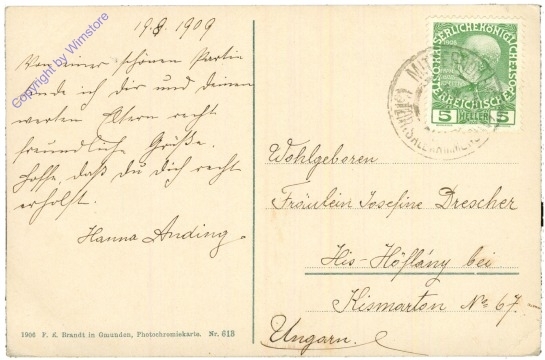 19.8.1909
Von einer schönen Partie
sende ich dir und deinen
werten Eltern recht
freundliche Grüße.
Hoffe, daß du dich recht
erholst.
Hanna Anding.
Copyright by Wimstore
KAISERLICHE KÖNIGLICHE
ÖSTERREICHISCHE POST
5 HELLER 5
Wohlgeboren
Fräulein Josefine Drescher
His-Höflány bei
Kismarton No 67.
Ungarn.
1906 F. E. Brandt in Gmunden, Photochromiekarte. Nr. 613